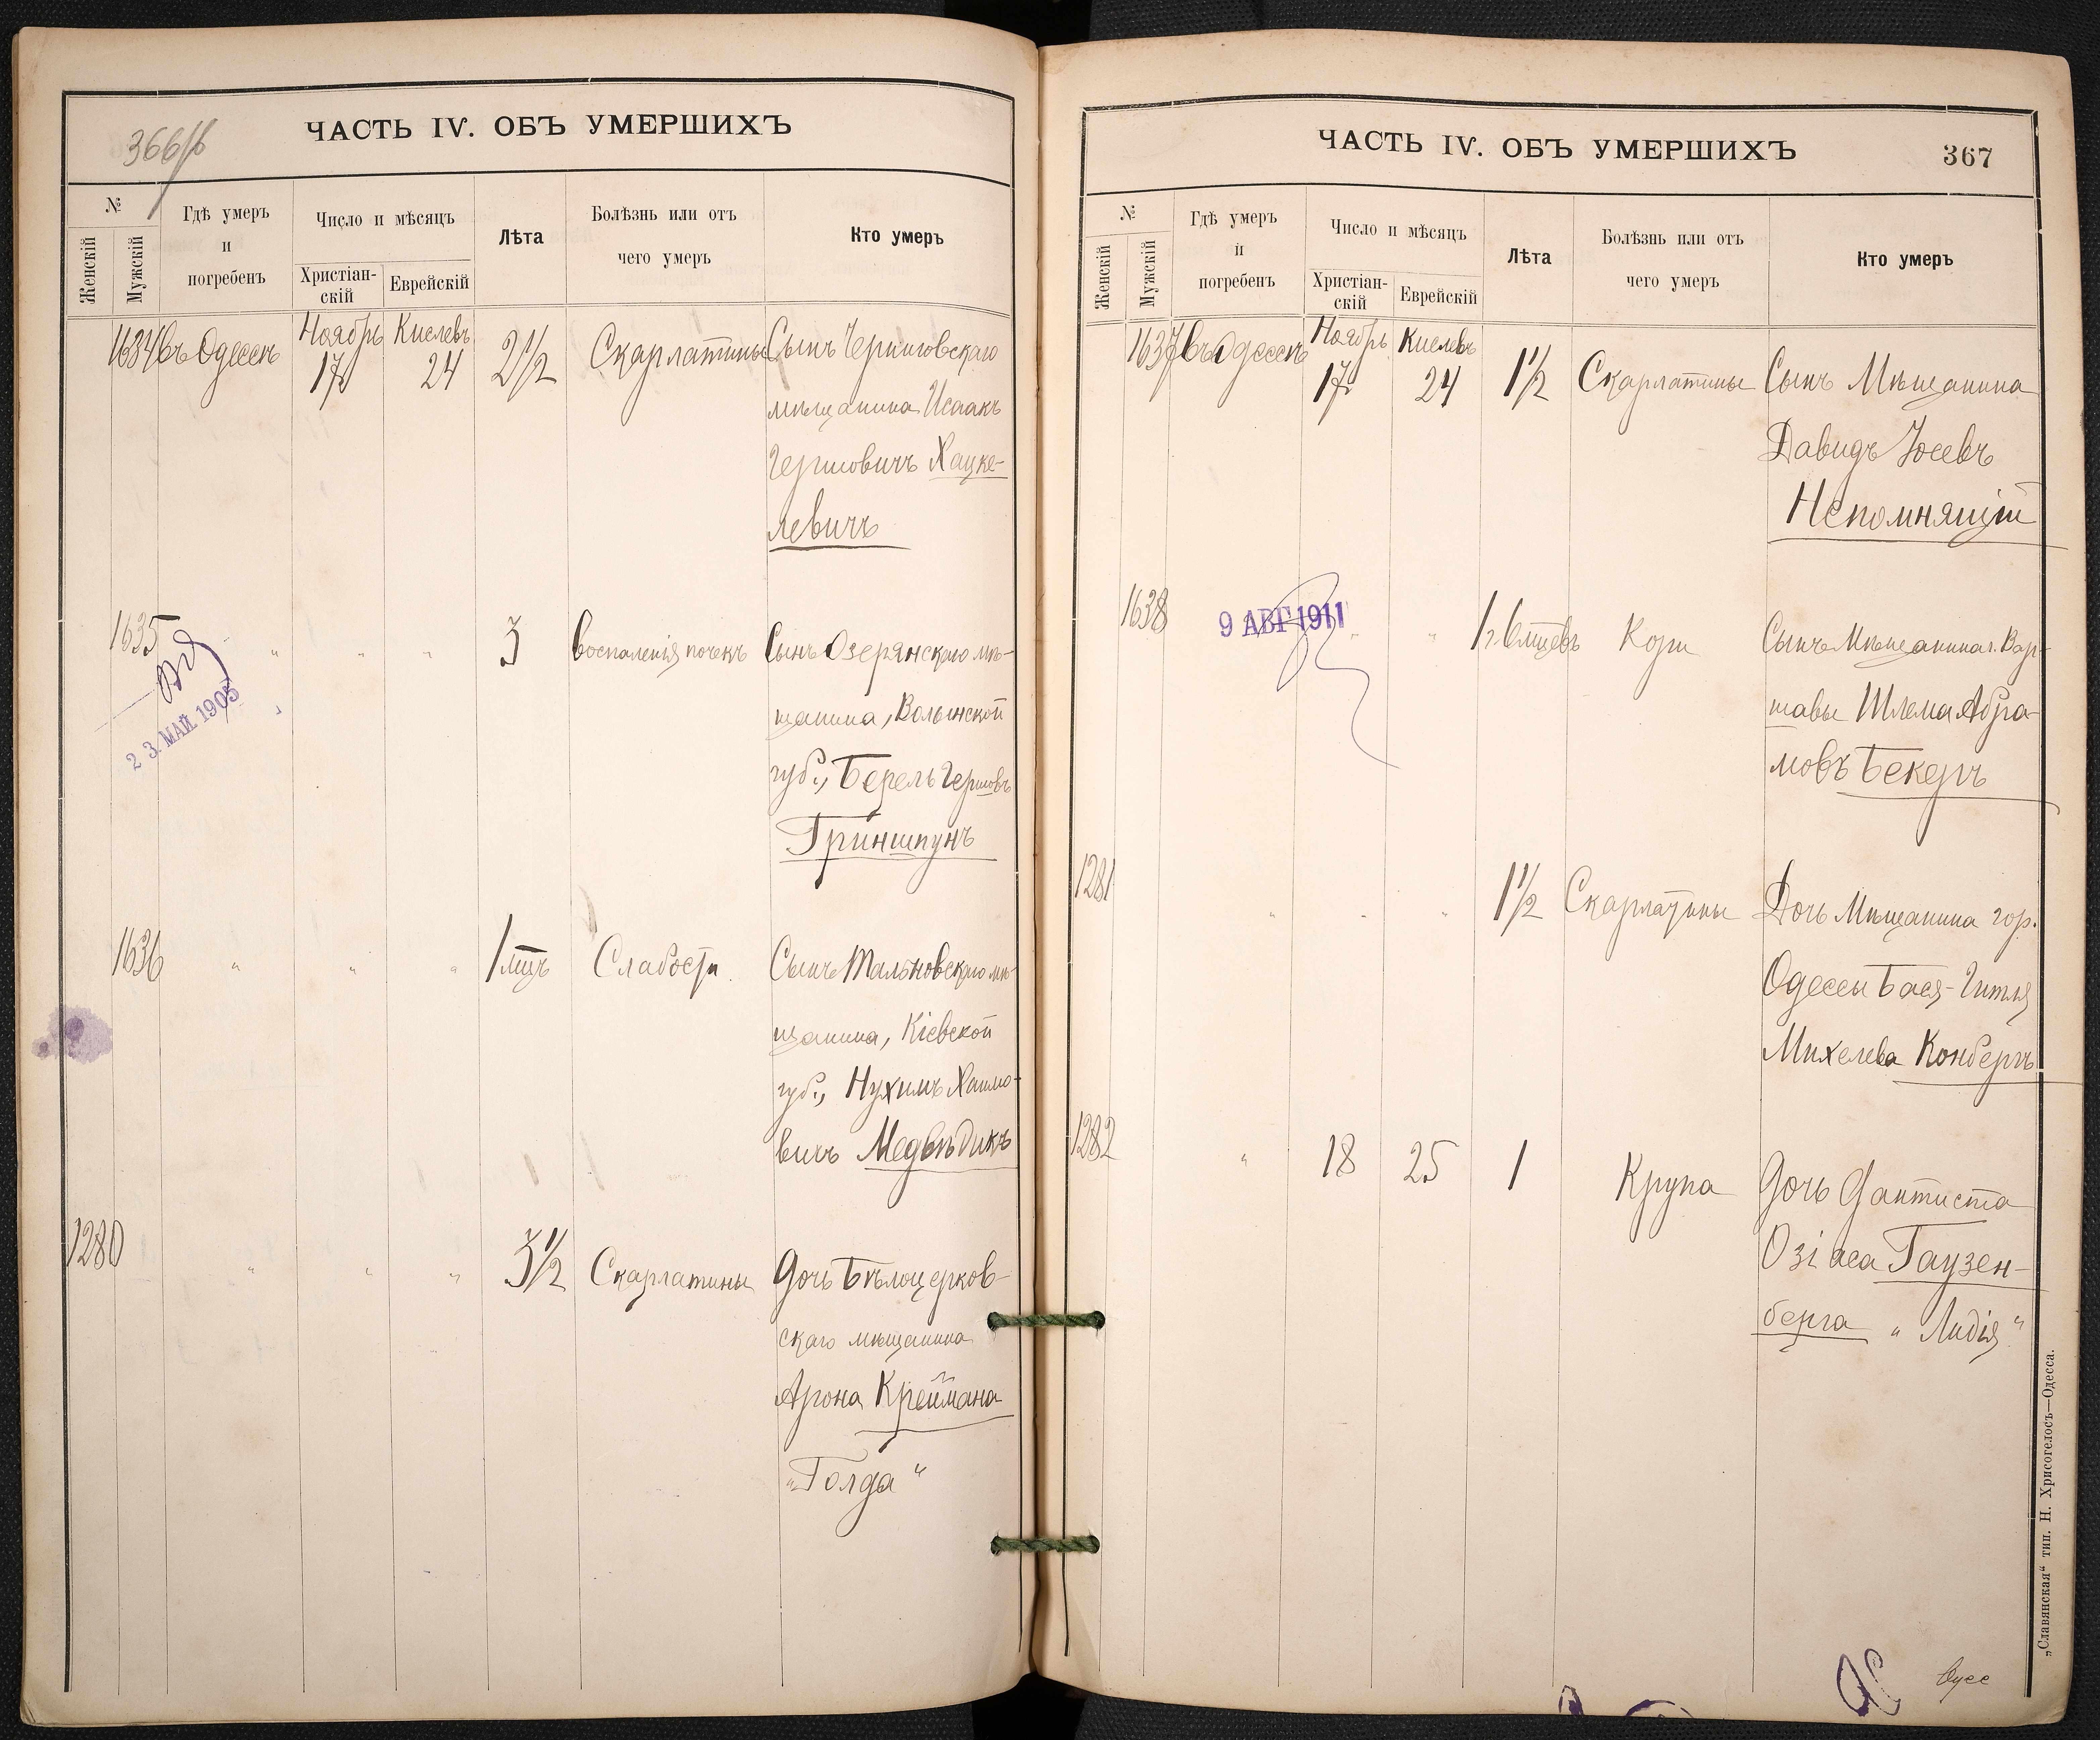 366/b
ЧАСТЬ IV. ОБЪ УМЕРШИХЪ
№
Женскій
Мужскій
Гдѣ умеръ
и
погребенъ
Число и мѣсяцъ
Христіан-
скій
Еврейскій
Лѣта
Болѣзнь или отъ
чего умеръ
Кто умеръ
1634 въ Одессѣ Ноябрь 17 Кислевъ 24 2 1/2 Скарлатины Сынъ Черниговскаго
мѣщанина Исаакъ
Гершовичъ Хацке-
левичъ
1635 " " " 3 Воспаленія почекъ Сынъ Озерянскаго мѣ-
щанина, Волынской
губ., Берель Гершовъ
Гриншпунъ
23 МАЙ 1905
1636 " " " 1 мцъ Слабости Сынъ Тальновскаго мѣ-
щанина, Кіевской
губ., Нухимъ Хаимо-
вичъ Медвѣдикъ
1280 " " " 3 1/2 Скарлатины Дочь Бѣлоцерков-
скаго мѣщанина
Арона Креймана
"Голда"
ЧАСТЬ IV. ОБЪ УМЕРШИХЪ
367
№
Женскій
Мужскій
Гдѣ умеръ
и
погребенъ
Число и мѣсяцъ
Христіан-
скій
Еврейскій
Лѣта
Болѣзнь или отъ
чего умеръ
Кто умеръ
1637 въ Одессѣ Ноябрь 17 Кислевъ 24 1 1/2 Скарлатины Сынъ Мѣщанина
Давидъ Іосевъ
Непомнящій
1638 9 АВГ 1911 " " 1 г. 6 мцевъ Кори Сынъ Мѣщанина г. Вар-
шавы Шлема Абра-
мовъ Бекеръ
1281 " " " 1 1/2 Скарлатины Дочь Мѣщанина гор.
Одессы Бася-Гитля
Михелева Конбергъ
1282 " 18 25 1 Крупа Дочь Дантиста
Озіаса Гаузен-
берга "Лидія"
„Славянская“ тип. Н. Хрисогелосъ—Одесса.